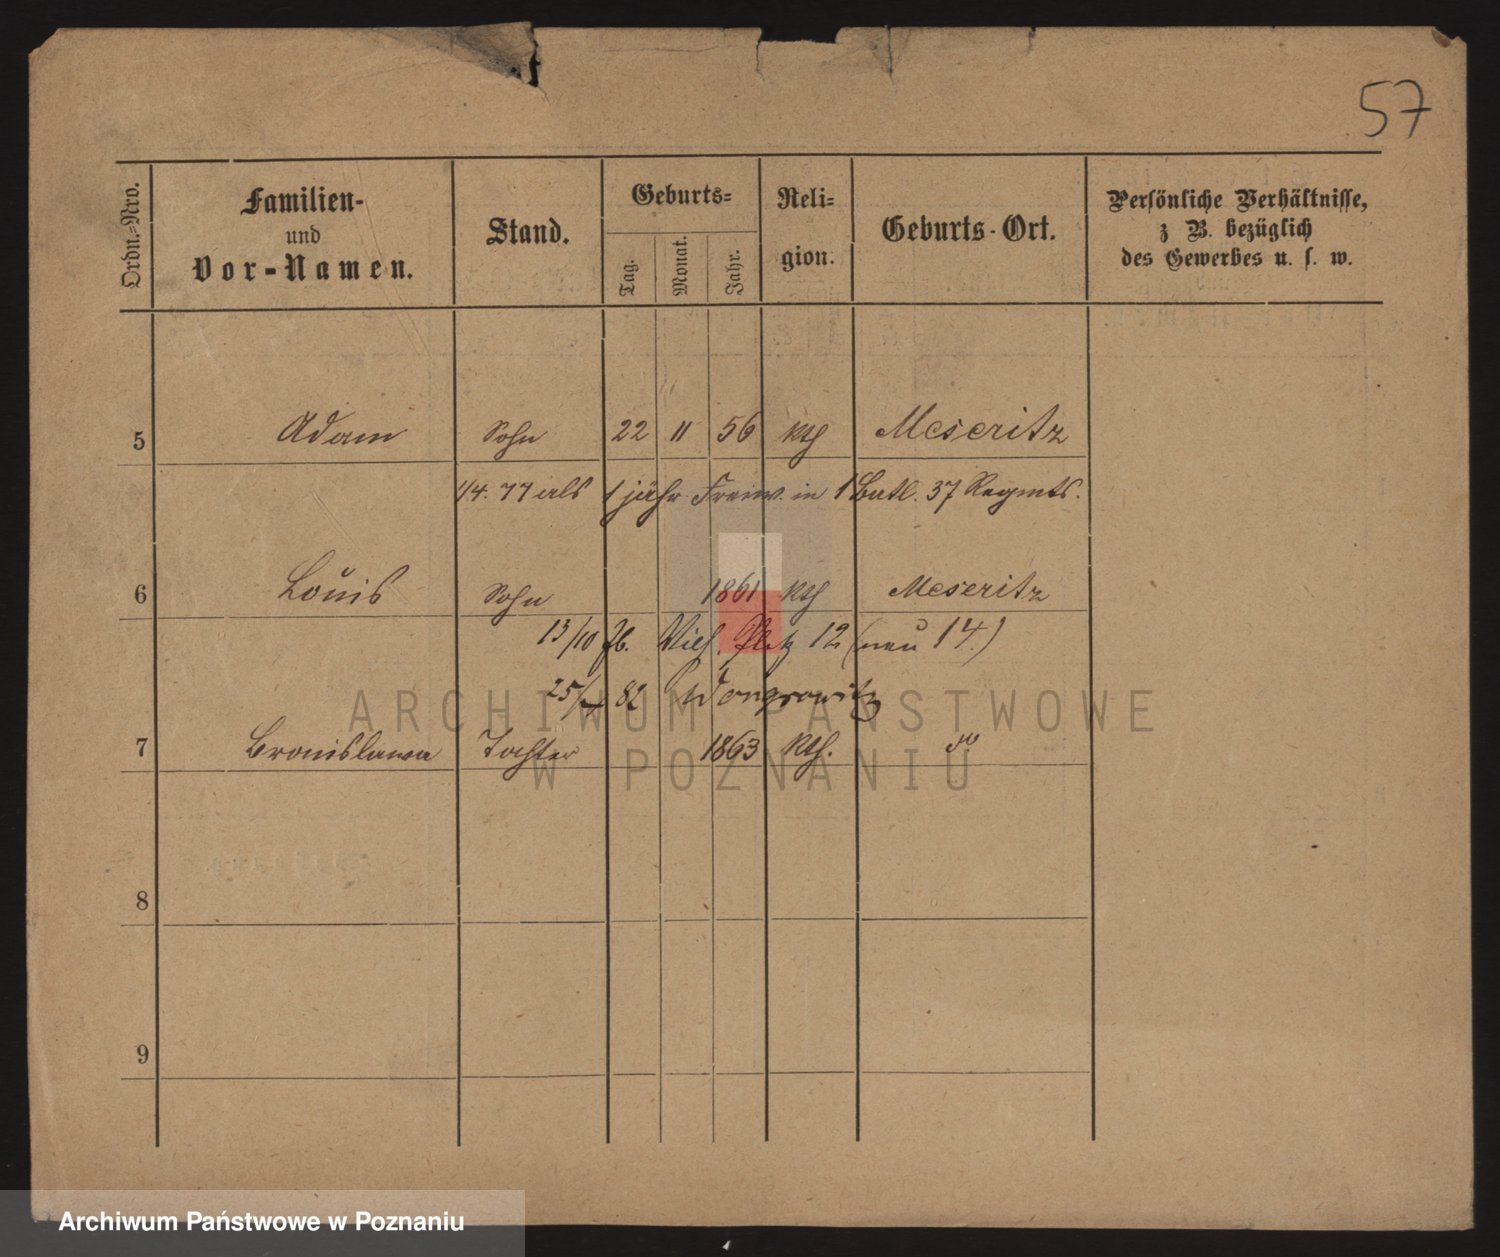 57
Ordn.-Nro.
Familien-
und
Vor-Namen.
Stand.
Geburts-
Tag.
Monat.
Jahr.
Reli-
gion.
Geburts-Ort.
Persönliche Verhältnisse,
z B. bezüglich
des Gewerbes u. s. w.
5 Adam Sohn 22 11 56 kth Meseritz
1/4. 77 als 1 jähr Freiw. in 1 Batl. 37 Regmts.
6 Louis Sohn 1861 kth Meseritz
13/10 12 (neu 14.)
25/ 82 Wongrowitz
7 Bronislawa Tochter 1863 kth. do
8
9
ARCHIWUM PAŃSTWOWE
W POZNANIU
Archiwum Państwowe w Poznaniu